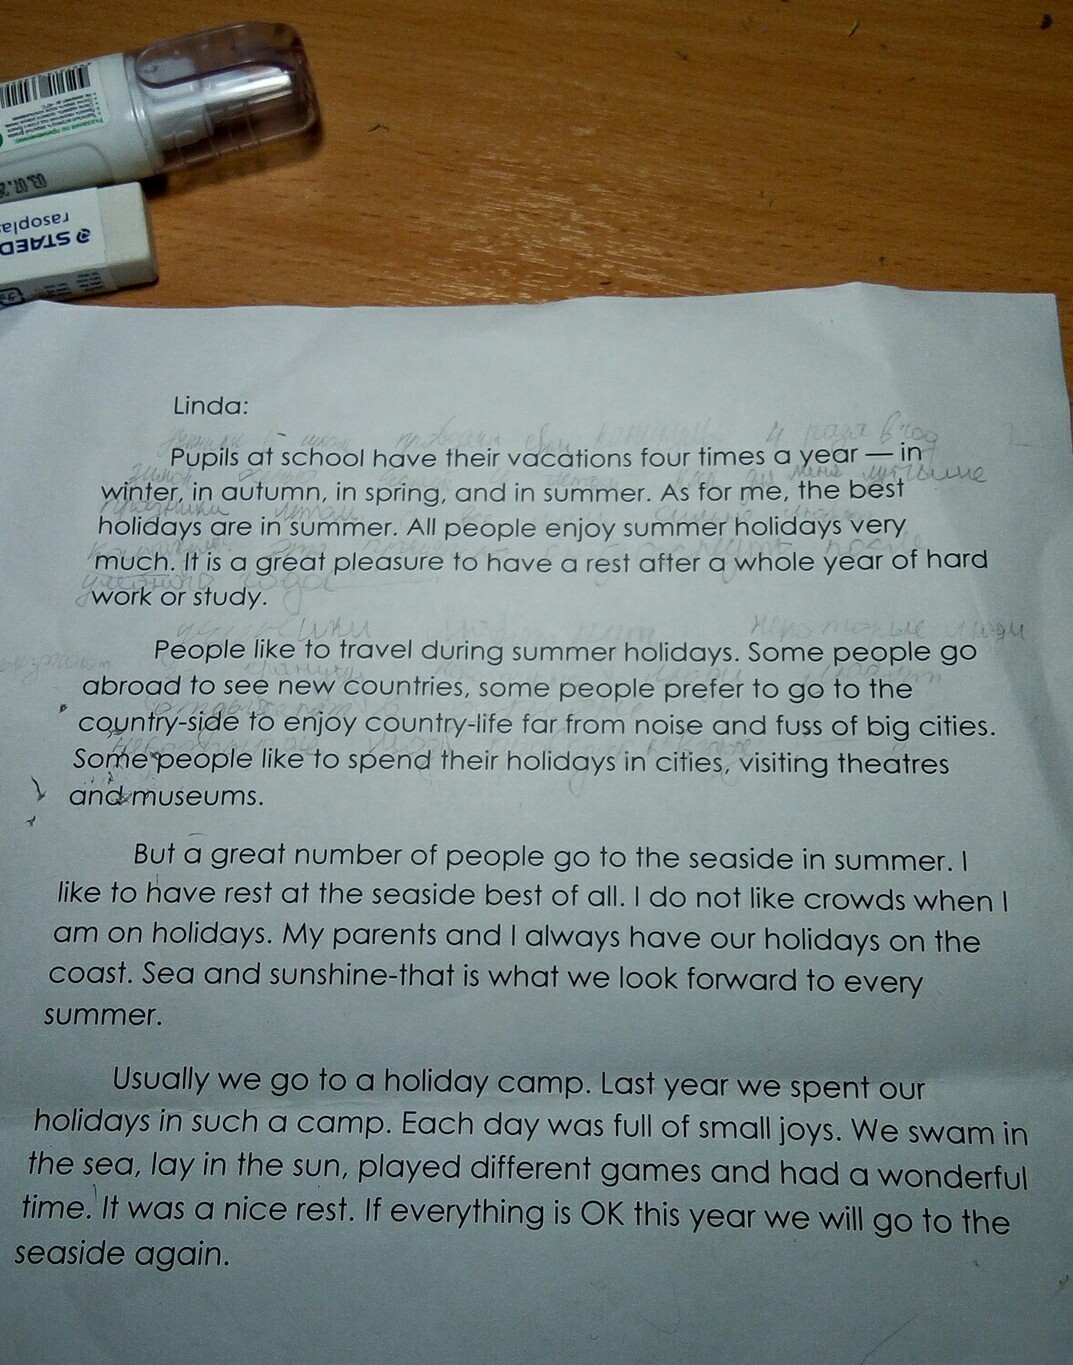 03.07.2
rasoplas
STAED
Linda:
4 раза в год
Pupils at school have their vacations four times a year — in
winter, in autumn, in spring, and in summer. As for me, the best
праздники летом
holidays are in summer. All people enjoy summer holidays very
much. It is a great pleasure to have a rest after a whole year of hard
учебного года
work or study.
некоторые люди
People like to travel during summer holidays. Some people go
abroad to see new countries, some people prefer to go to the
country-side to enjoy country-life far from noise and fuss of big cities.
Some people like to spend their holidays in cities, visiting theatres
and museums.
But a great number of people go to the seaside in summer. I
like to have rest at the seaside best of all. I do not like crowds when I
am on holidays. My parents and I always have our holidays on the
coast. Sea and sunshine-that is what we look forward to every
summer.
Usually we go to a holiday camp. Last year we spent our
holidays in such a camp. Each day was full of small joys. We swam in
the sea, lay in the sun, played different games and had a wonderful
time. It was a nice rest. If everything is OK this year we will go to the
seaside again.